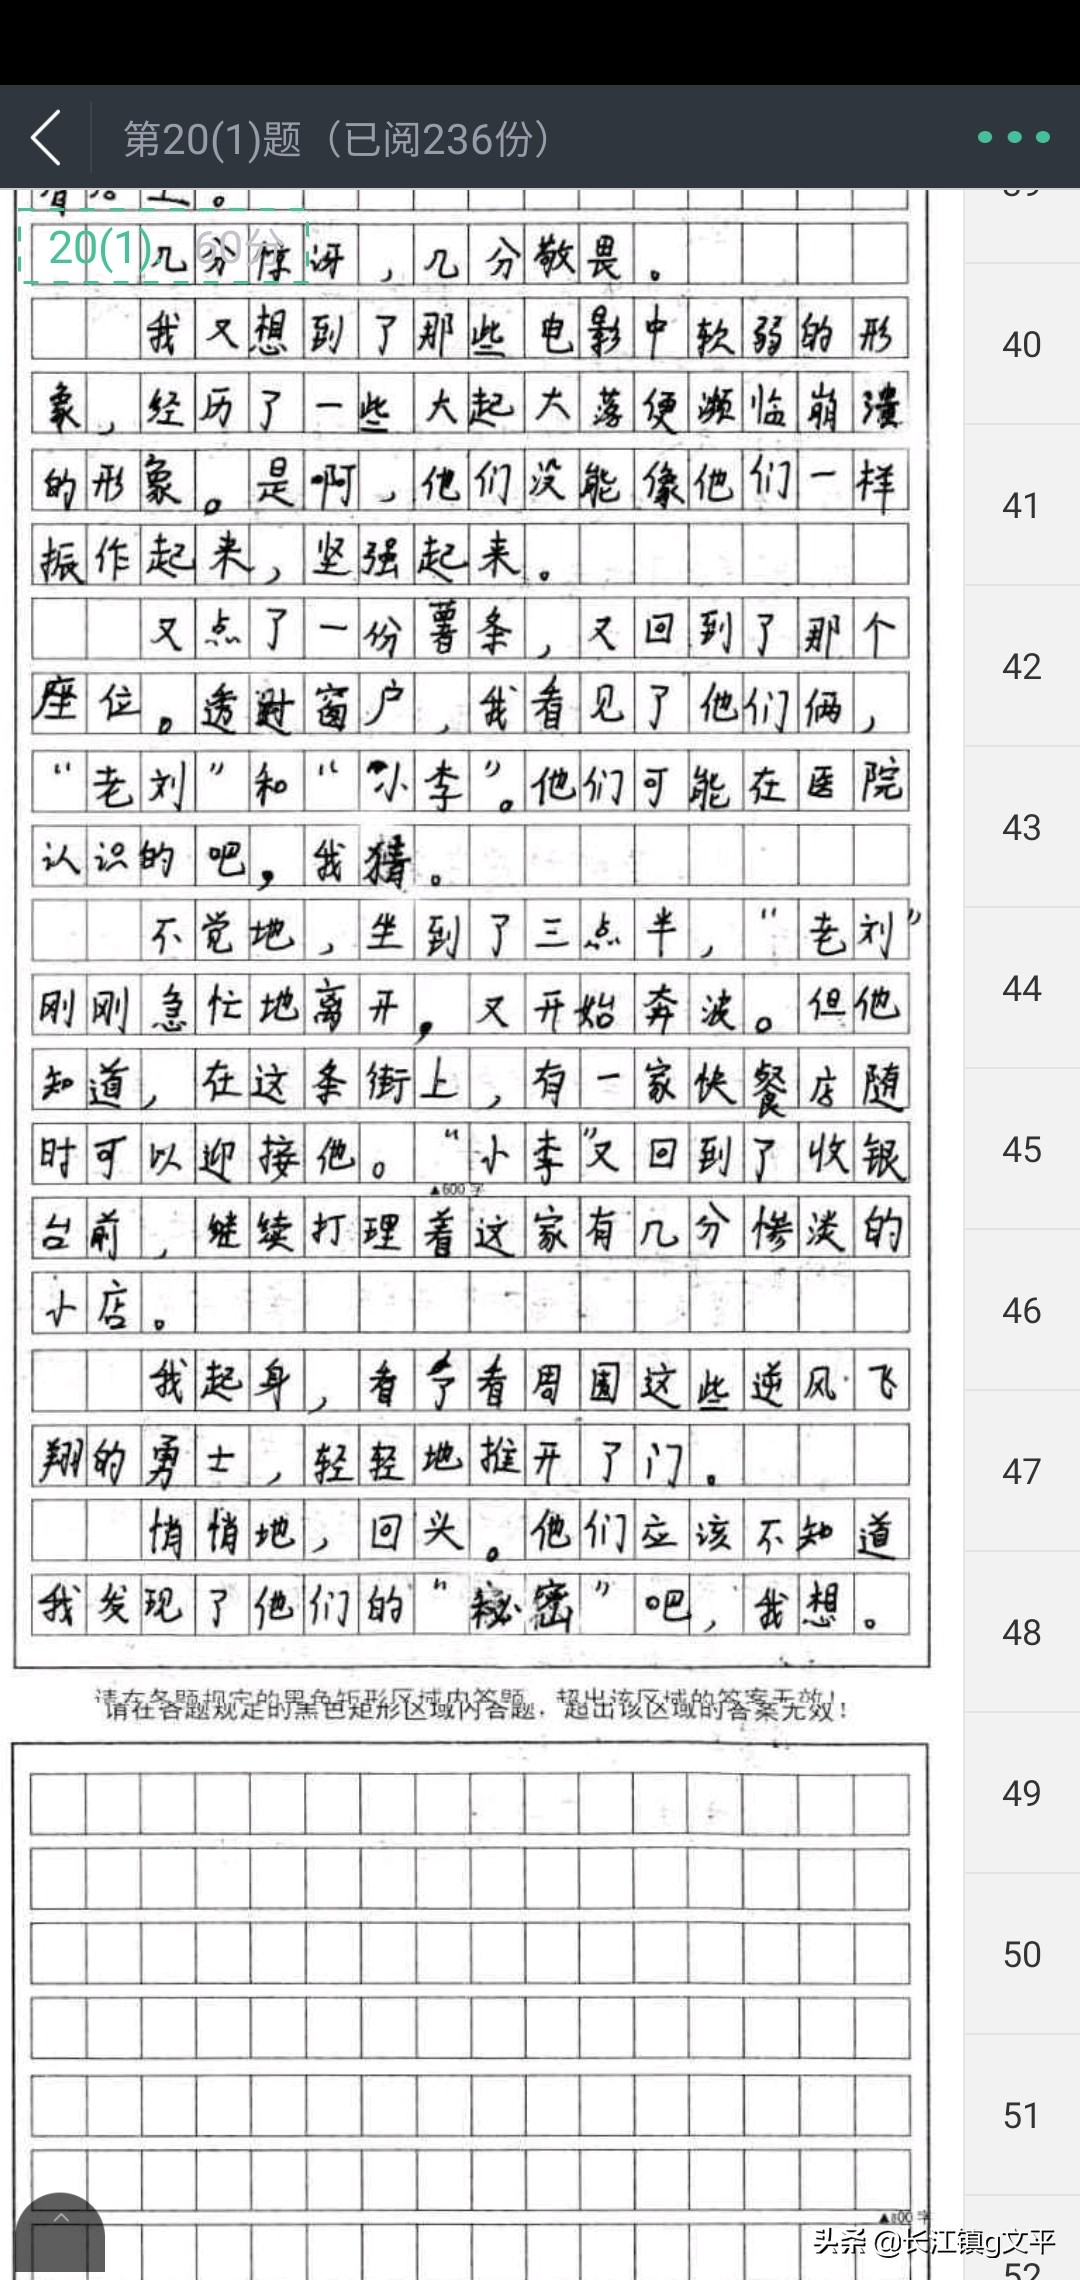 第20(1)题（已阅236份）
20(1) 60分
几分惊讶，几分敬畏。
我又想到了那些电影中软弱的形
象，经历了一些大起大落便濒临崩溃
的形象。是啊，他们没能像他们一样
振作起来，坚强起来。
又点了一份薯条，又回到了那个
座位。透过窗户，我看见了他们俩，
“老刘”和“小李”。他们可能在医院
认识的吧，我猜。
不觉地，坐到了三点半，“老刘”
刚刚急忙地离开，又开始奔波。但他
知道，在这条街上，有一家快餐店随
时可以迎接他。“小李”又回到了收银
▲600字
台前，继续打理着这家有几分惨淡的
小店。
我起身，看了看周围这些逆风飞
翔的勇士，轻轻地推开了门。
悄悄地，回头。他们应该不知道
我发现了他们的“秘密”吧，我想。
请在各题规定的黑色矩形区域内答题，超出该区域的答案无效！
请在各题规定的黑色矩形区域内答题，超出该区域的答案无效！
▲800字
40
41
42
43
44
45
46
47
48
49
50
51
52
头条 @长江镇g文平